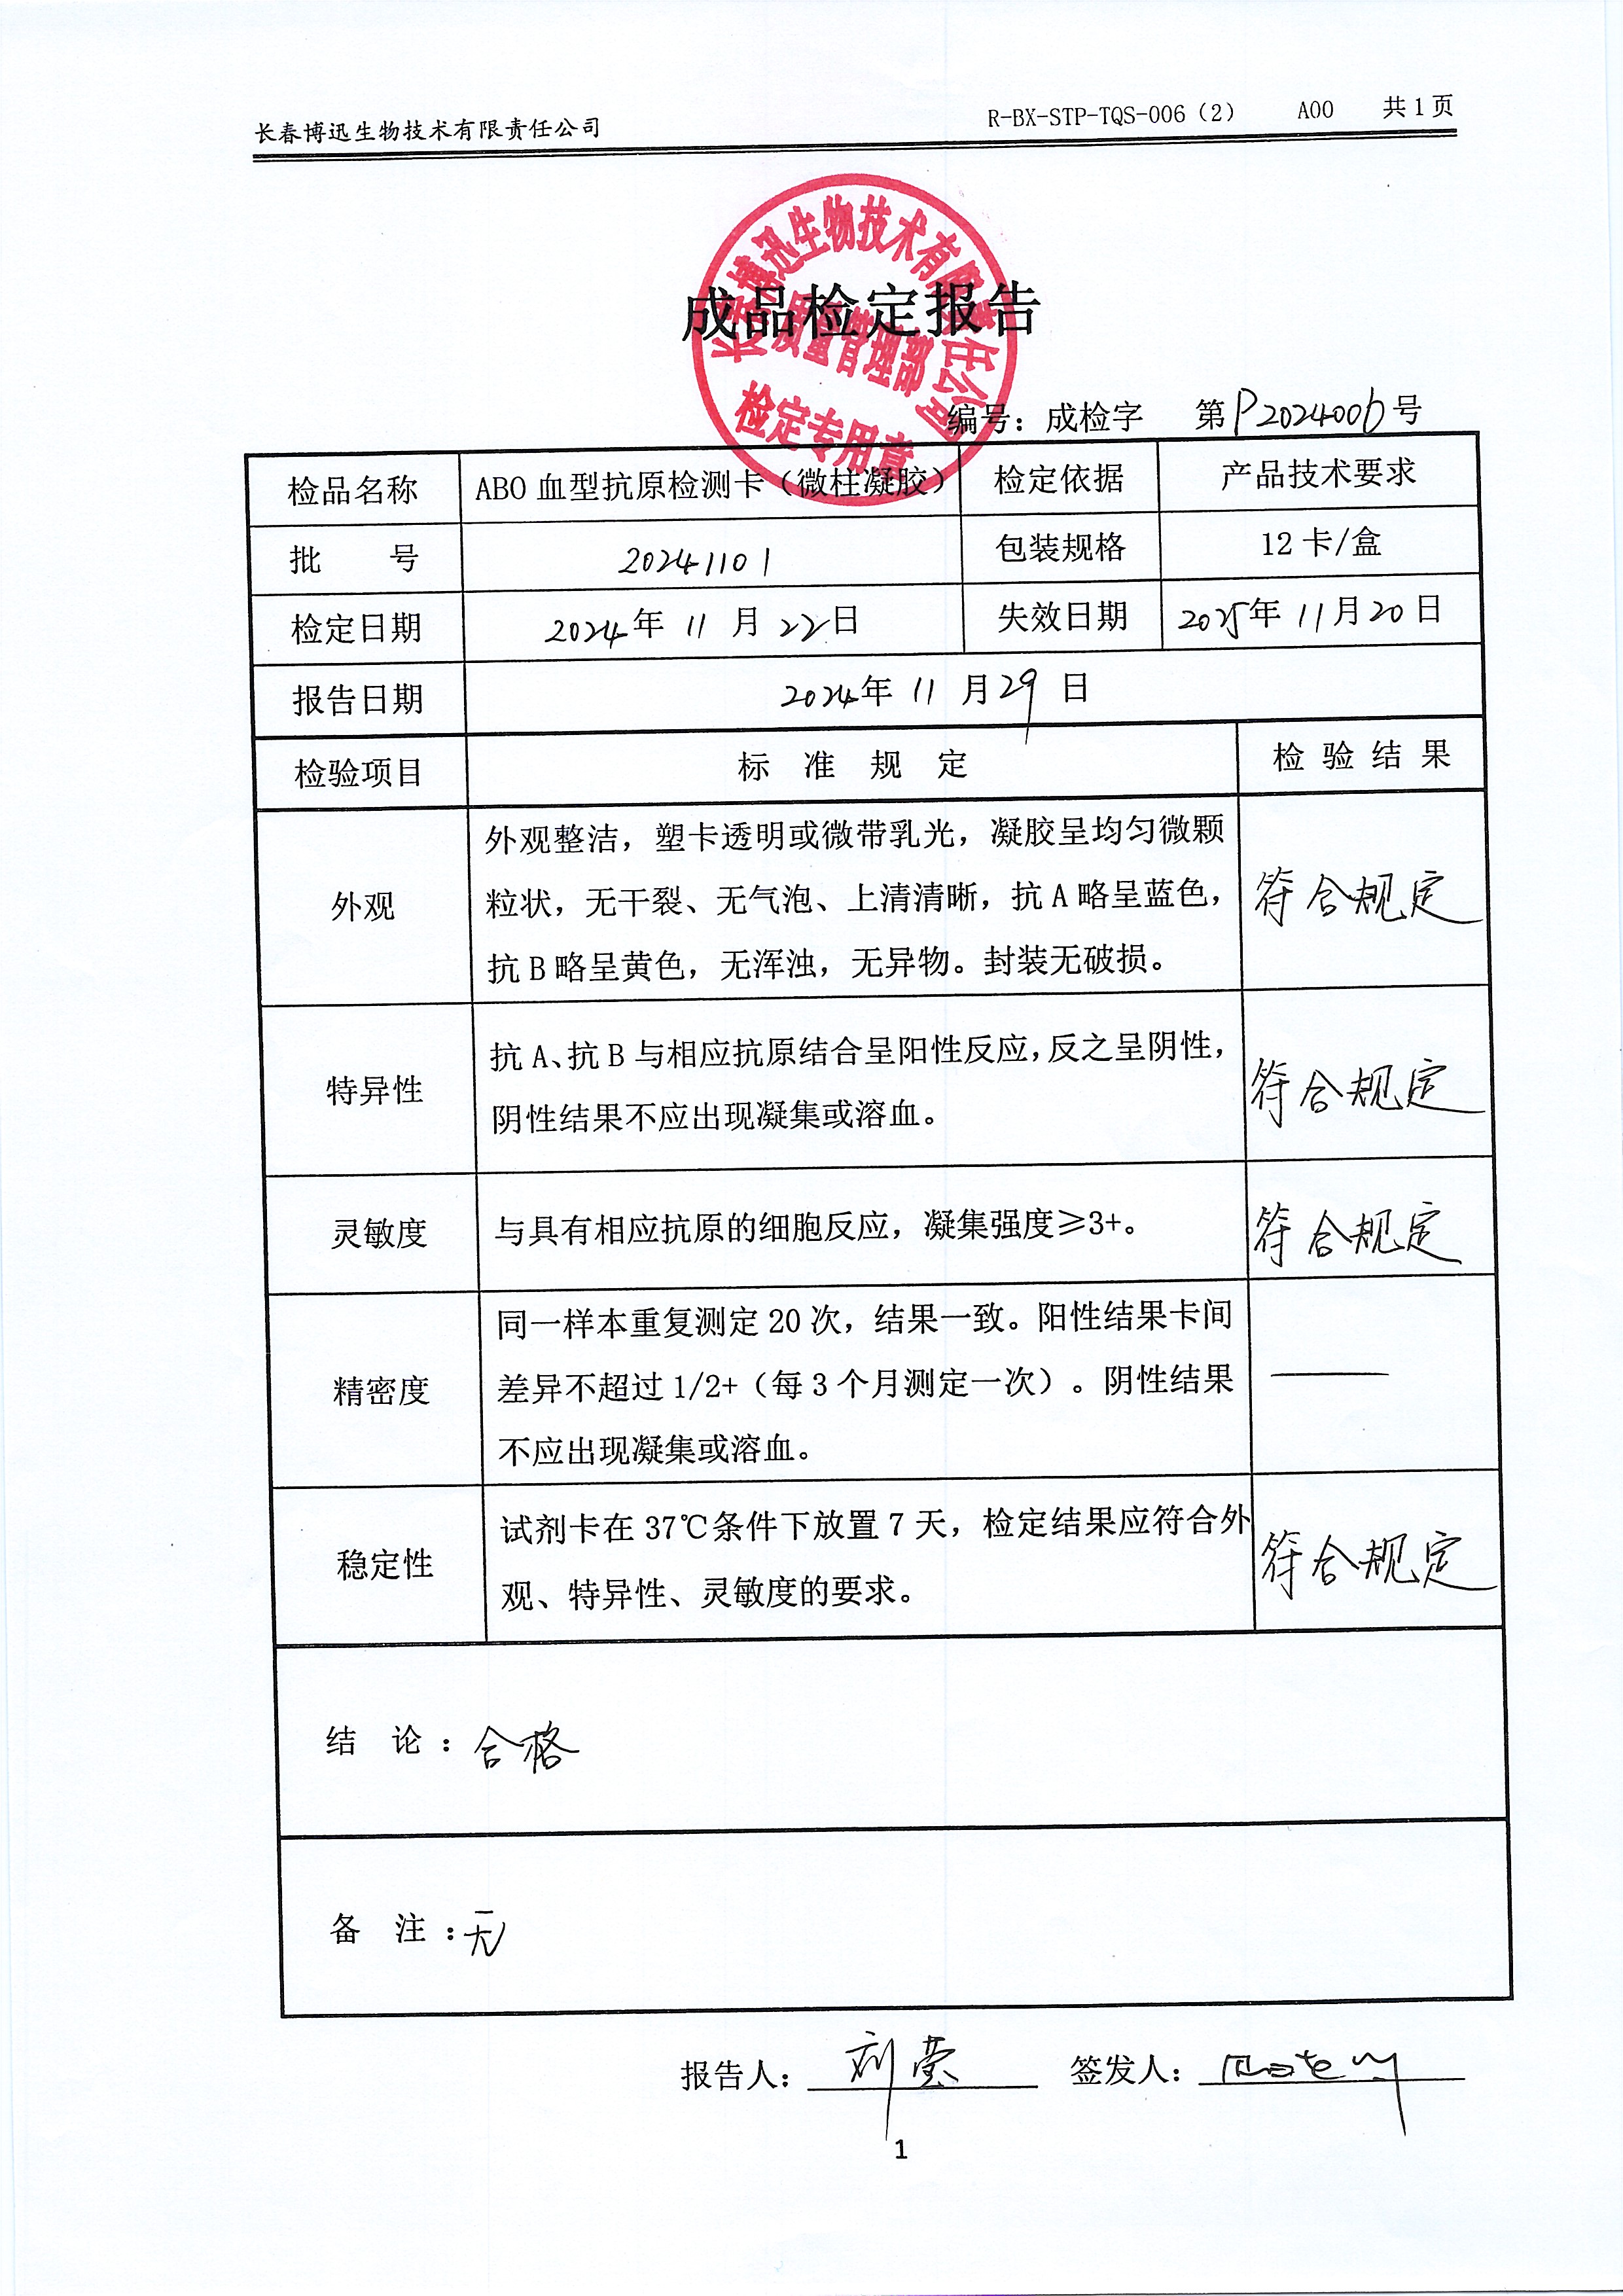 长春博迅生物技术有限责任公司 R-BX-STP-TQS-006（2） A00 共1页
长春博迅生物技术有限责任公司
质量管理部
检定专用章
成品检定报告
编号：成检字 第P2024006号
检品名称 ABO血型抗原检测卡（微柱凝胶） 检定依据 产品技术要求
批 号 20241101 包装规格 12卡/盒
检定日期 2024年 11 月 22日 失效日期 2025年 11月20日
报告日期 2024年 11 月29 日
检验项目 标 准 规 定 检 验 结 果
外观整洁，塑卡透明或微带乳光，凝胶呈均匀微颗
外观 粒状，无干裂、无气泡、上清清晰，抗A略呈蓝色， 符合规定
抗B略呈黄色，无浑浊，无异物。封装无破损。
抗A、抗B与相应抗原结合呈阳性反应，反之呈阴性，
特异性 符合规定
阴性结果不应出现凝集或溶血。
灵敏度 与具有相应抗原的细胞反应，凝集强度≥3+。 符合规定
同一样本重复测定20次，结果一致。阳性结果卡间
精密度 差异不超过1/2+（每3个月测定一次）。阴性结果 ——
不应出现凝集或溶血。
试剂卡在37℃条件下放置7天，检定结果应符合外
稳定性 符合规定
观、特异性、灵敏度的要求。
结 论：合格
备 注：无
报告人： 刘莹 签发人：
1